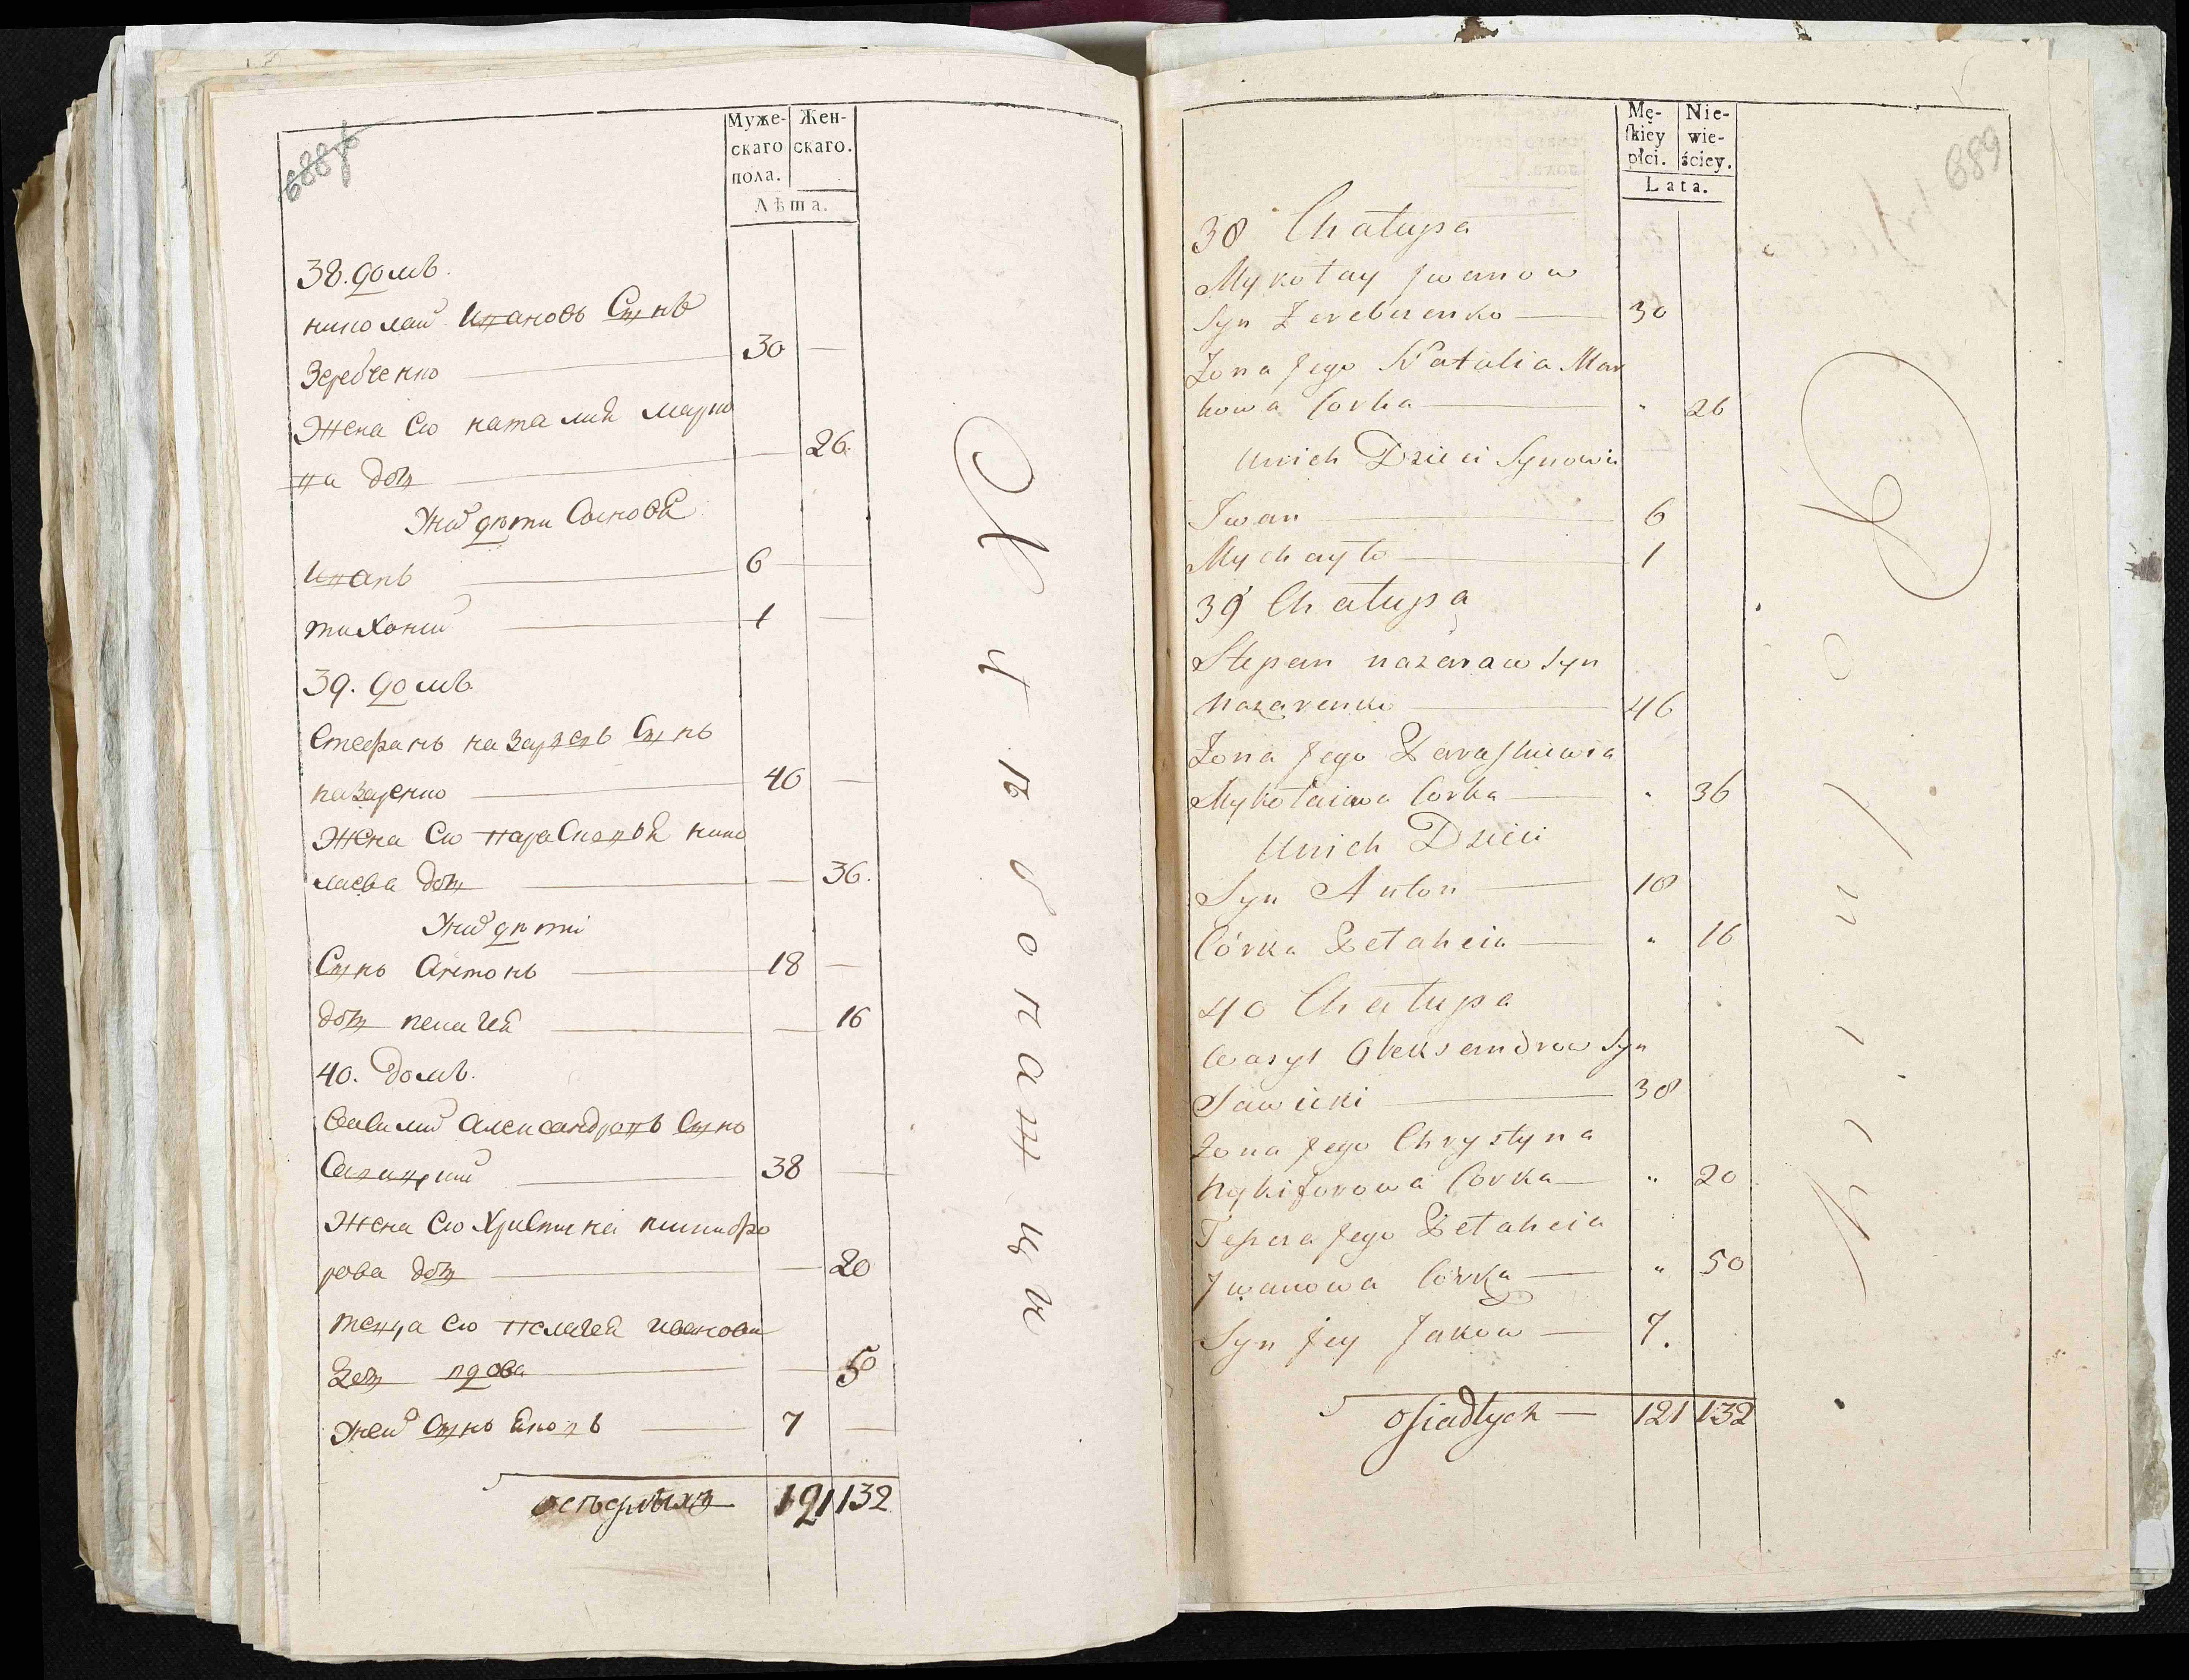 688 об
Муже-
скаго
пола.
Жен-
скаго.
Лѣта.
38. домъ.
николай Ивановъ Сынъ
Зеребченко — 30 —
Жена Его наталия марко
ва доч — 26.
У них дѣти Сыновя
Иванъ — 6 —
тихоний — 1 —
39. домъ
Стефанъ назаревъ Сынъ
назаренко — 46 —
Жена Его параскевья нико
лаева доч — 36.
У них дѣти
Сынъ Антонъ — 18 —
доч пелагея — 16
40. домъ.
Василий Александровъ Сынъ
Савицкий — 38 —
Жена Его Христина никифо
рова доч — 20
теща Его Пелагея иванова
доч вдова — 50
у ней Сынъ Яковъ — 7 —
осѣдлыхъ 121 132
689
Mę-
skiey
płci.
Nie-
wie-
ściey.
Lata.
38 Chałupa
Mykołay Jwanow
Syn Zereberenko — 30
Zona Jego Natalia Mar
kowa Corka — " 26
U nich Dzieci Synowie
Jwan — 6
Mychayło — 1
39 Chałupa
Stepan nazaraw Syn
Nazarenko — 46
Zona Jego Paraskiewia
Mykołaiowa Corka — " 36
U nich Dzieci
Syn Anton — 18
Córka Petaheia — " 16
40 Chałupa
Wasyl Oleksandrow Syn
Sawicki — 38
Zona Jego Chrystyna
Nykiforowa Corka — " 20
Teszcza Jego Petaheia
Jwanowa Córka — " 50
Syn Jey Jakow — 7.
osiadłych — 121 132